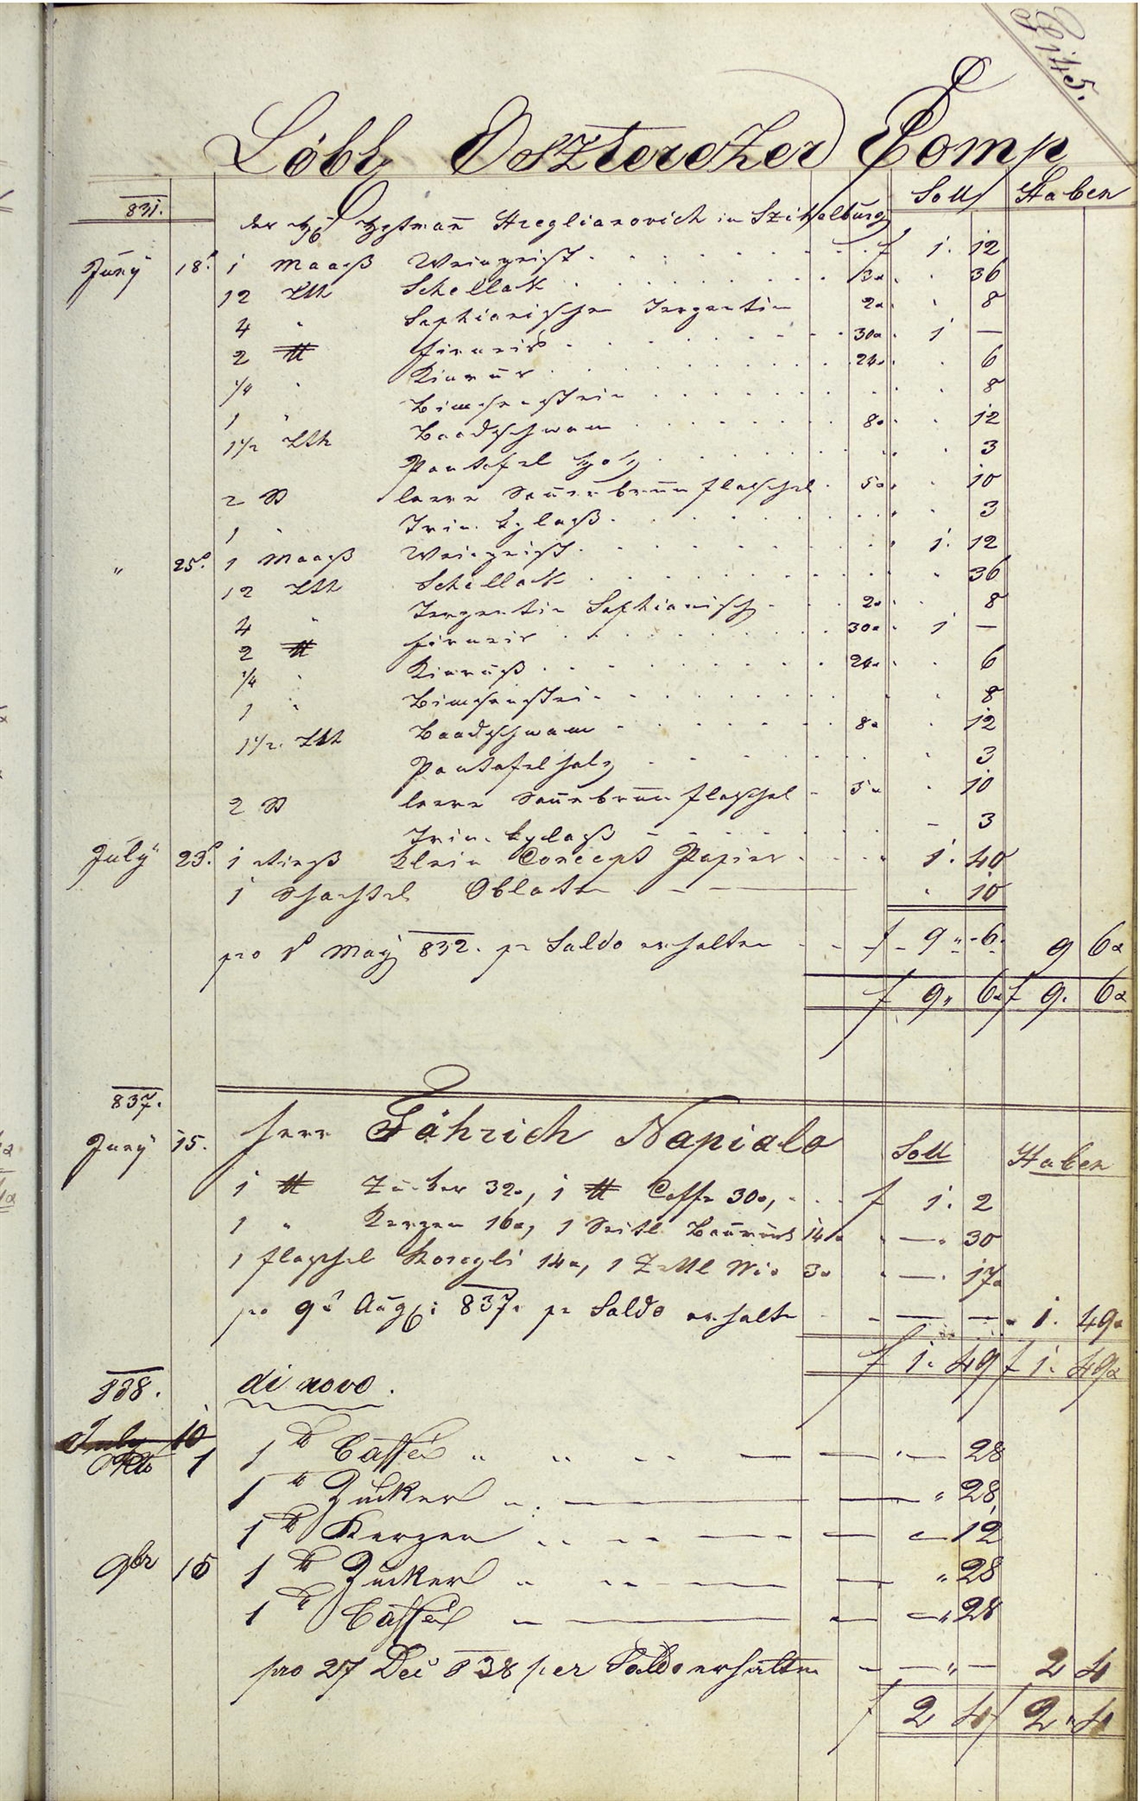 145.
Löbl Oszterezer Comp
831. Soll Haben
der H. Hptman Hreglianovich in Szithalburg
Juny 18t. 1 Maaß Weingeist f 1. 12
12 Lth Schellak 3x 36
4 " Sephionischen Tergentin 2x 8
2 ℔ Firneiß 30x 1 —
1/4 " Kinrus 24x 6
1 " Bimsenstein 8
1 1/2 Lth Baadschwam 8x 12
Pantofel Holz 3
2 St leere Sauerbrunn Flaschel 5x 10
1 " Trinkglaß 3
" 25t. 1 Maaß Weingeist 1. 12
12 Lth Schellak 36
4 " Tergentin Sephionisch 2x 8
2 ℔ Firneis 30x 1 —
1/4 " Kinruß 24x 6
1 " Bimsenstein 8
1 1/2 Lth Baadschwam 8x 12
Pantofelholz 3
2 St leere Sauerbrunn Flaschel 5x 10
Trinkglaß 3
July 23t. 1 Rieß klein Concept Papier 1. 40
1 Schachtel Oblaten 10
pro May 832. pr Saldo erhalten f 9 " 6. 9 6x
f 9 " 6x f 9. 6x
837.
Juny 15. Herr Fähnrich Napialo Soll Haben
1 ℔ Zucker 32x, 1 ℔ Caffe 30x, f 1. 2
1 " Kerzen 16x, 1 Seitl 14x — 30
1 Flaschel Rosogli 14x, 1 3x — 17x
pro 9t Aug: 837. pr Saldo erhalte — — 1. 49x
f 1. 49 f 1. 49x
838. di novo.
July 10
Okto 1 1 ℔ Caffée " " — — 28
1 ℔ Zucker " — — " 28
1 ℔ Kerzen " — — 12
9br 15 1 ℔ Zucker " — — " 28
1 ℔ Caffée — — — " 28
pro 27 Dec 838 per Saldo erhalten — — " — 2 4
f 2 4 f 2 " 4